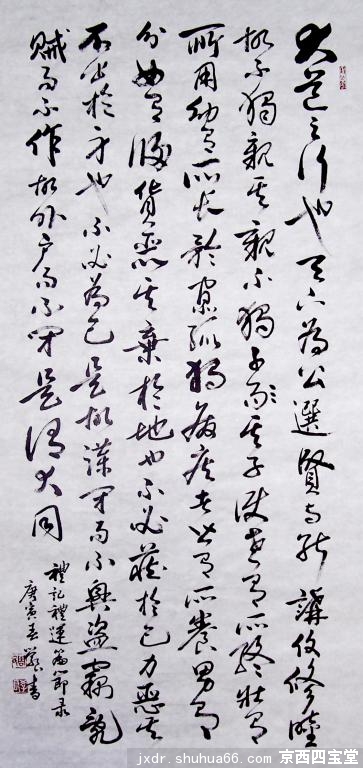 大道之行也天下為公選賢与能講信修睦
故不獨親其親不獨子其子使老有所終壯有
所用幼有所長矜寡孤獨廢疾者皆有所養男有
分女有歸貨惡其棄於地也不必藏於己力惡其
不出於身也不必為己是故謀閉而不興盜竊亂
賊而不作故外戶而不閉是謂大同
禮記禮運篇節录
庚寅春書
jxdr.shuhua66.com 京西四宝堂